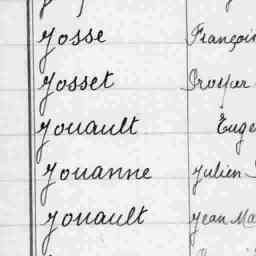 Josse François
Josset Prosper
Jouault Euge
Jouanne Julien
Jouault Jean Ma